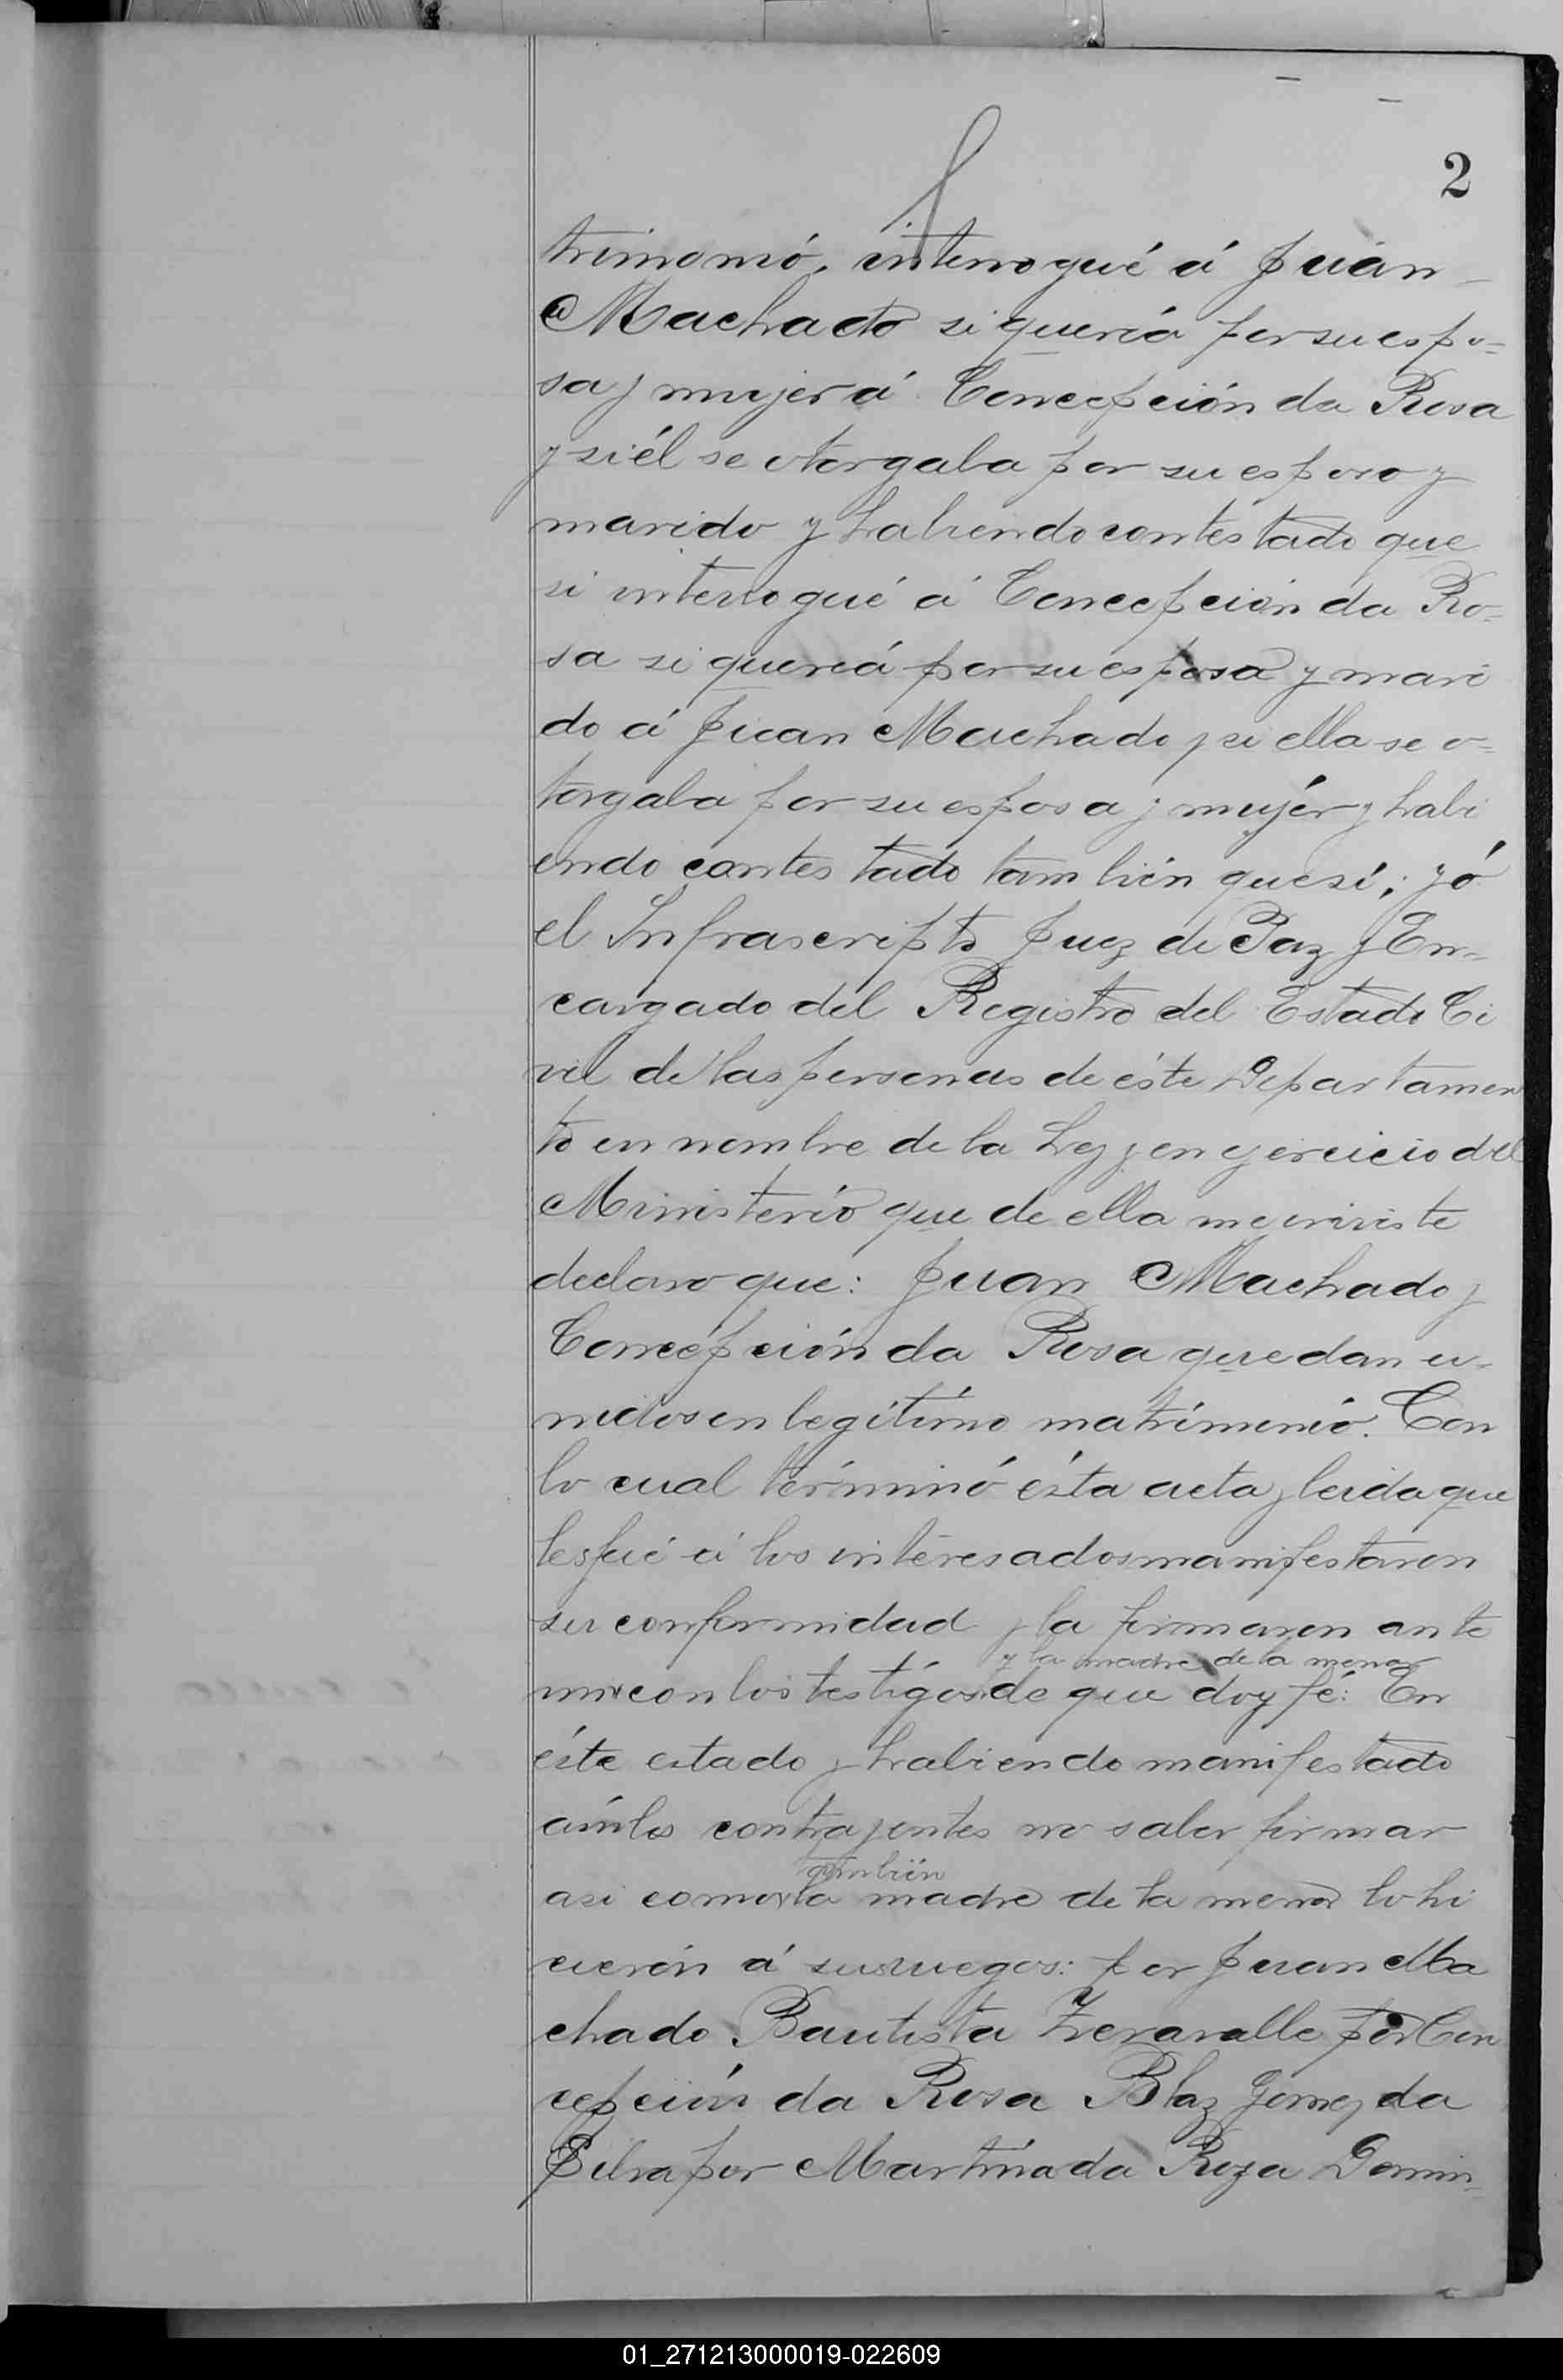 2
trimonió, interrogué á Juan
Machado si quería por su espo=
sa y mujer á Concepción da Rosa
y si él se otorgaba por su esposo y
marido y habiendo contestado que
si interrogué á Concepción da Ro=
sa si quería por su esposo y mari
do á Juan Machado y si ella se o=
torgaba por su esposa y mujér y habi
endo contestado tambien que sí; yó
el Infrascripto Juez de Paz y En=
cargado del Registro del Estado Ci
vil de las personas de éste Departamen
to en nombre de la Ley y en ejercicio del
Ministerio que de ella me inviste
declaro que: Juan Machado y
Concepción da Rosa quedan u=
nidos en legítimo matrimonió. Con
lo cual términó ésta acta y leida que
les fué á los interesados manifestaron
su conformidad y la firmaron ante
y la madre de la menor
mi con los testigos de que doy fé: En
éste estado y habiendo manifestado
ámbos contrayentes no saber firmar
tambien
asi como la madre de la menor lo hi
cierón á sus ruegos: por Juan Ma
chado Bautista por Con
cepción da Rosa Blaz Gomez da
Silva por Martina da Roza Domin=
01_271213000019-022609